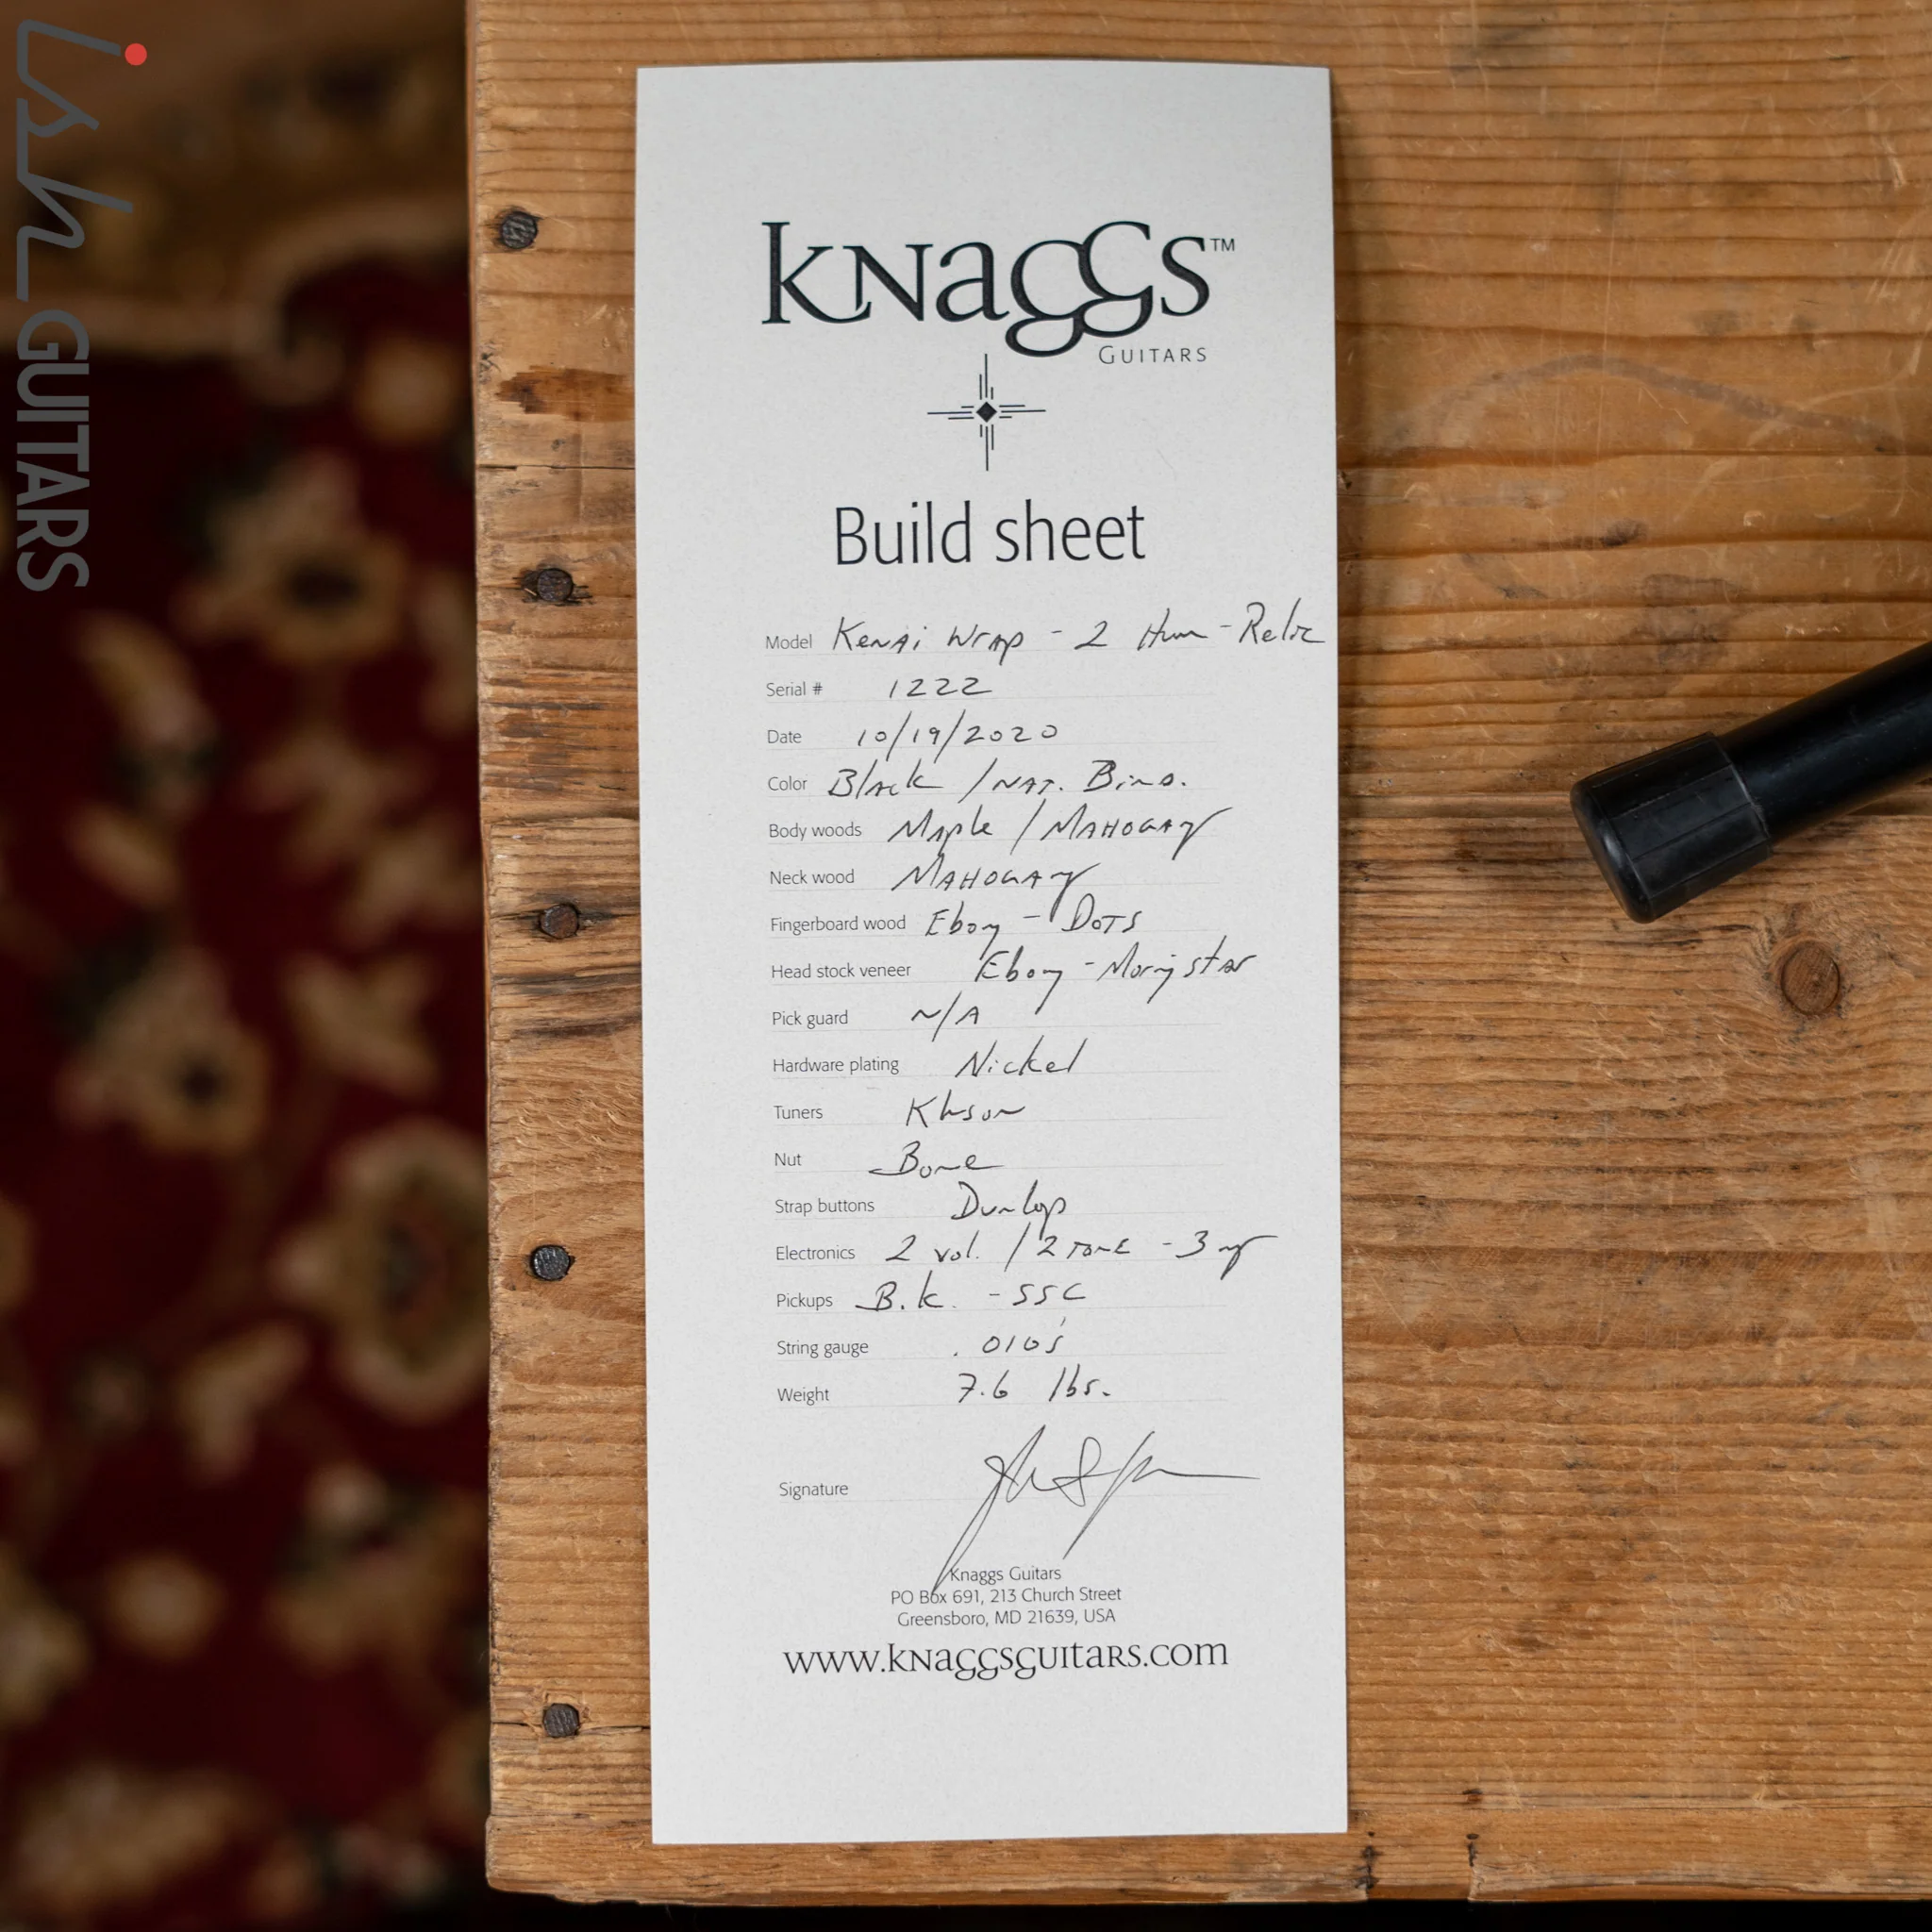 ish GUITARS
KNAGGS™
GUITARS
Build sheet
Model Kenai Wrap - 2 Hum - Relic
Serial # 1222
Date 10/19/2020
Color Black / NAT. Bind.
Body woods Maple / MAHOGANY
Neck wood MAHOGANY
Fingerboard wood Ebony - DOTS
Head stock veneer Ebony - Morningstar
Pick guard N/A
Hardware plating Nickel
Tuners Kluson
Nut Bone
Strap buttons Dunlop
Electronics 2 vol. / 2 TONE - 3 way
Pickups B.K. - SSC
String gauge .010's
Weight 7.6 lbs.
Signature
Knaggs Guitars
PO Box 691, 213 Church Street
Greensboro, MD 21639, USA
www.knaggsguitars.com